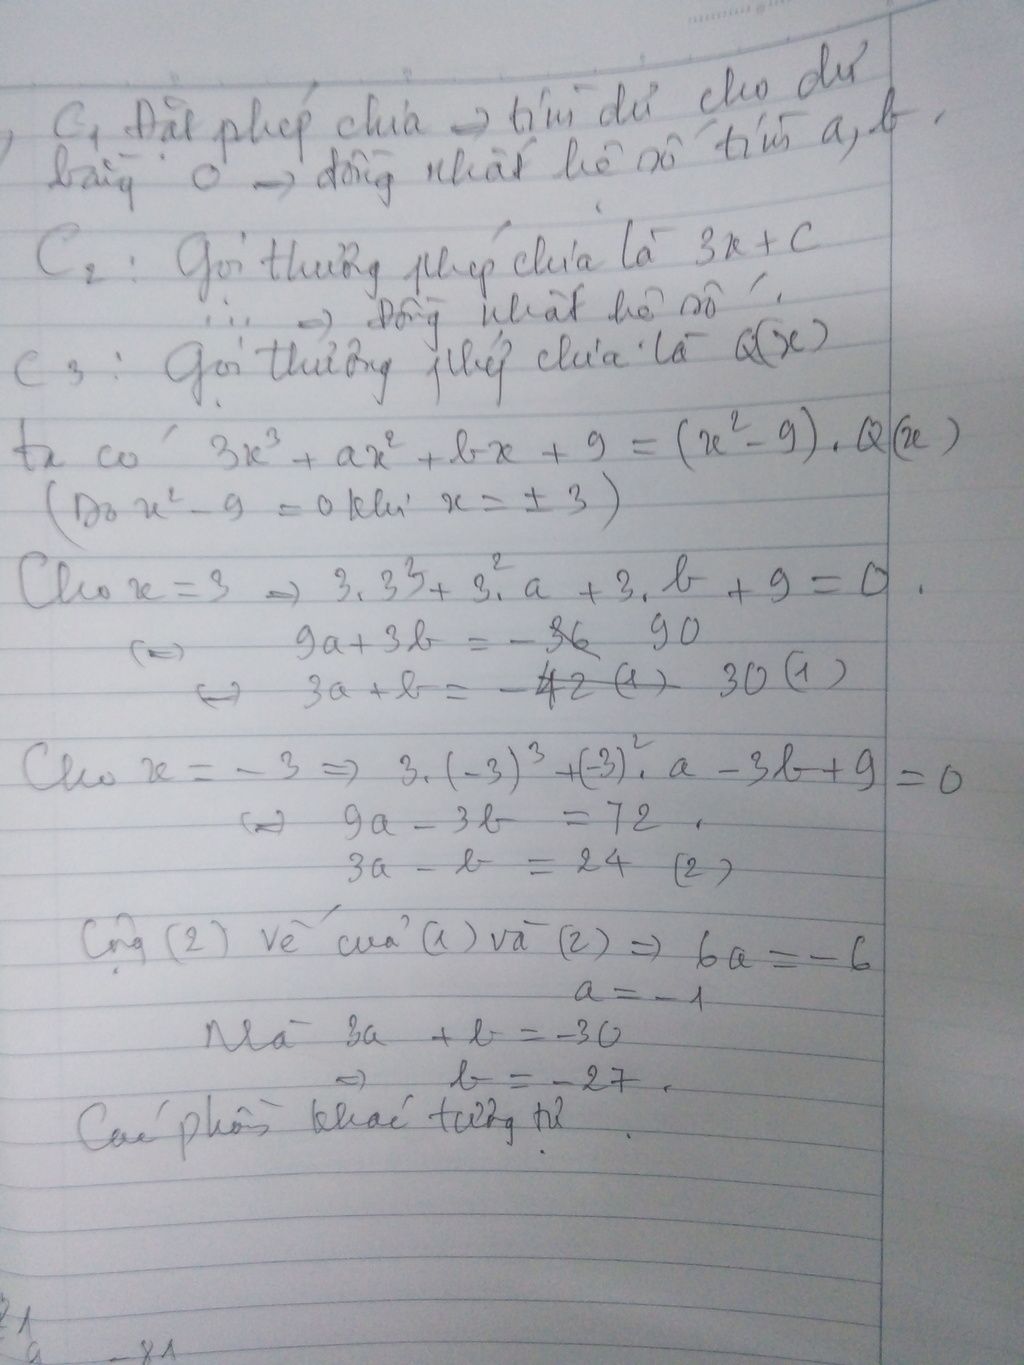 C₁ Đặt phép chia => tìm dư cho dư
bằng 0 => đồng nhất hệ số tìm a, b.
C₂ : Gọi thương phép chia là 3x + C
... => đồng nhất hệ số.
C3 : Gọi thương phép chia là Q(x)
ta có 3x³ + ax² + bx + 9 = (x² - 9). Q(x)
(Do x² - 9 = 0 khi x = ± 3)
Cho x = 3 => 3. 3³ + 3². a + 3. b + 9 = 0.
(=) 9a + 3b = - 36 90
(=) 3a + b = - 42 (1) 30 (1)
Cho x = - 3 => 3. (-3)³ + (-3)². a - 3b + 9 = 0
(=) 9a - 3b = 72.
3a - b = 24 (2)
Cộng (2) vế của (1) và (2) => 6a = - 6
a = - 1
Mà 3a + b = -30
=> b = -27.
Các phần khác tương tự.
21
9 -81